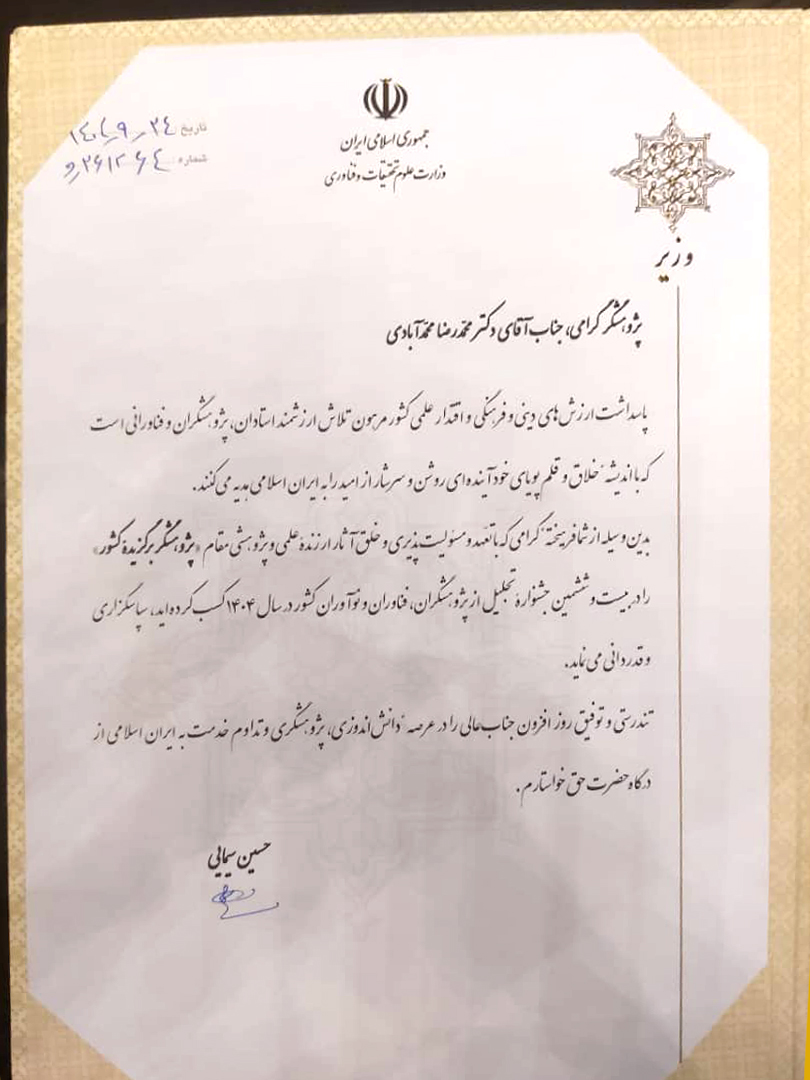 جمهوری اسلامی ایران
وزارت علوم تحقیقات و فناوری
تاریخ ۱۴۰۴٫۹٫۲۴
شماره
وزیر
پژوهشگر گرامی، جناب آقای دکتر محمدرضا محمدآبادی
پاسداشت ارزش‌های دینی و فرهنگی و اقتدار علمی کشور مرهون تلاش ارزشمند استادان، پژوهشگران و فناورانی است
که با اندیشهٔ خلاق و قلم پویای خود آینده‌ای روشن و سرشار از امید را به ایران اسلامی هدیه می‌کنند.
بدین وسیله از شما فرهیختهٔ گرامی که با تعهد و مسئولیت‌پذیری و خلق آثار ارزندهٔ علمی و پژوهشی مقام «پژوهشگر برگزیدهٔ کشور»
را در بیست و ششمین جشنوارهٔ تجلیل از پژوهشگران، فناوران و نوآوران کشور در سال ۱۴۰۴ کسب کرده‌اید، سپاسگزاری
و قدردانی می‌نماید.
تندرستی و توفیق روز افزون جناب‌عالی را در عرصهٔ دانش‌اندوزی، پژوهشگری و تداوم خدمت به ایران اسلامی از
درگاه حضرت حق خواستارم.
حسین سیمایی